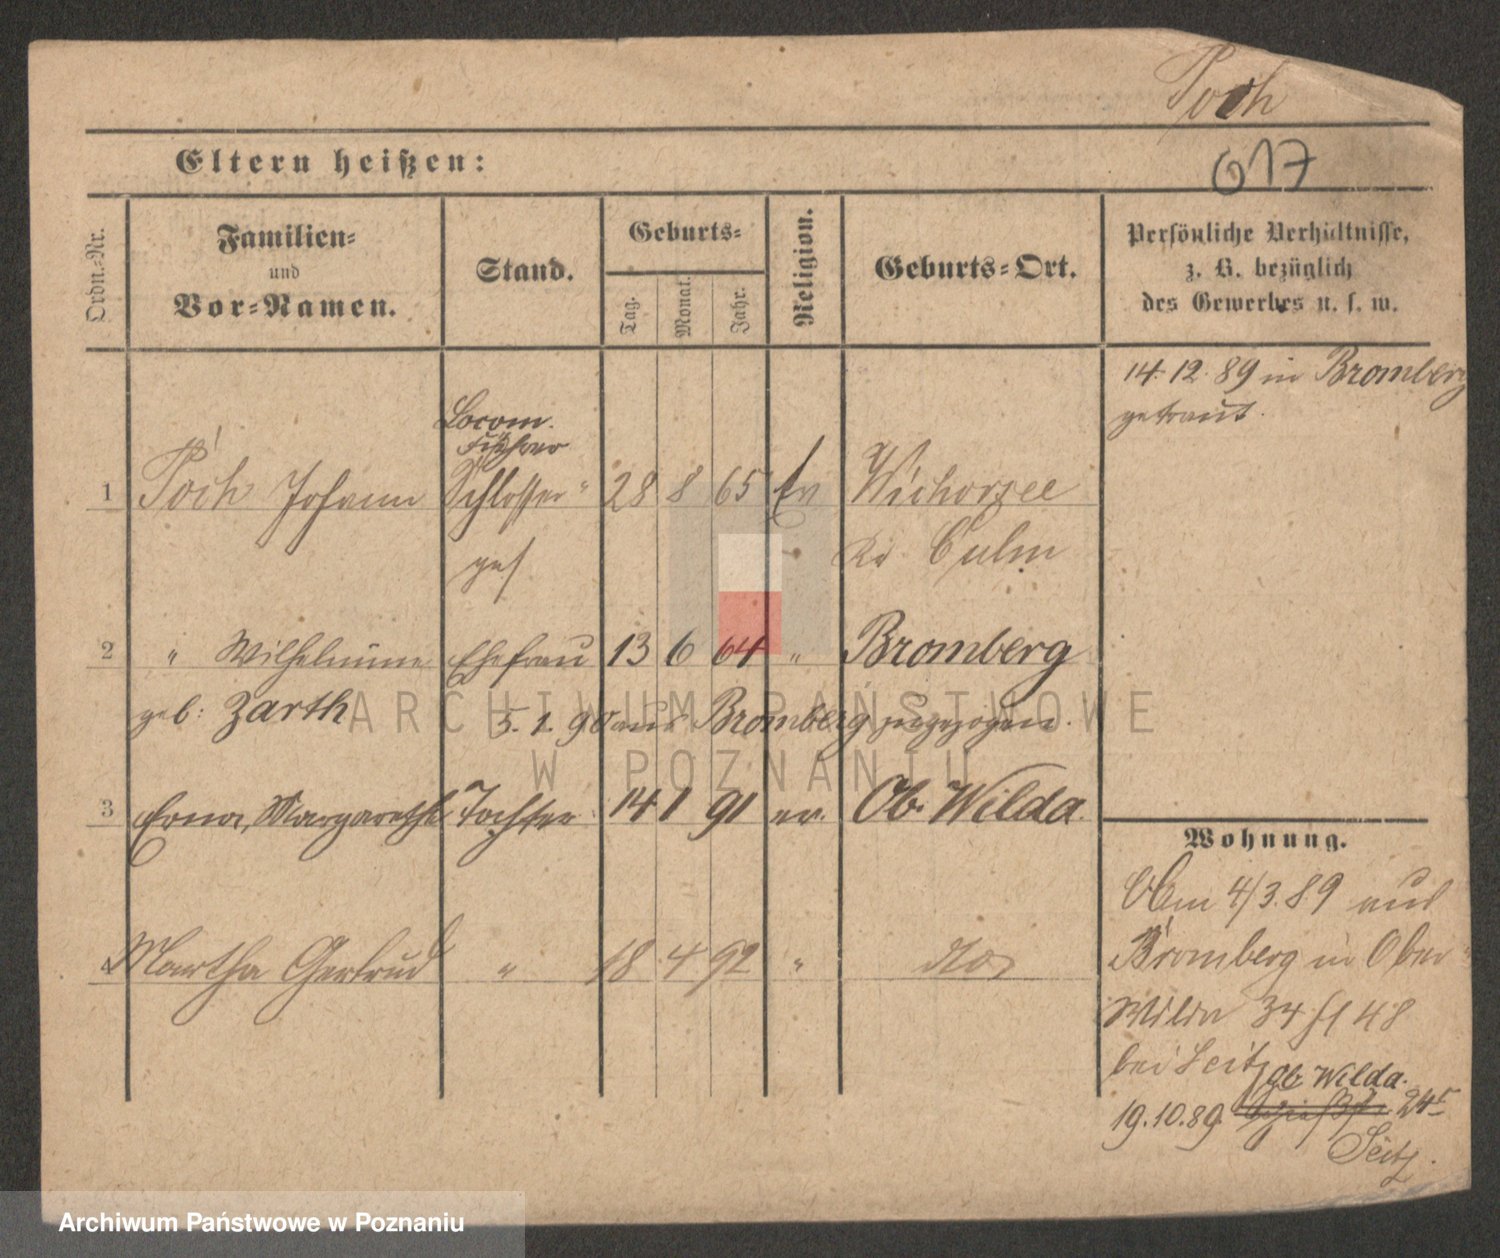 Poch
617
Eltern heißen:
Ordn.-Nr.
Familien-
und
Vor-Namen.
Stand.
Geburts-
Tag.
Monat.
Jahr.
Religion.
Geburts-Ort.
Persönliche Verhältnisse,
z. B. bezüglich
des Gewerbes u. s. w.
14. 12. 89 in Bromberg
getraut.
Locom.
Führer
1 Poch Johann Schlosser 28 8 65 Ev Wichorzee
Kr Culm
2 " Wilhelmine Ehefrau 13 6 64 " Bromberg
geb: Zarth 5. 1. 90 aus Bromberg zugezogen.
3 Erna, Margarethe Tochter 14 1 91 ev. Ob. Wilda.
4 Martha Gertrud " 18 4 92 " dto
Wohnung.
4/3.89 aus
Bromberg in Ober
Wilda 34 48
bei Seitz
Ob. Wilda.
19.10.89. 24
Seitz.
ARCHIWUM PAŃSTWOWE
W POZNANIU
Archiwum Państwowe w Poznaniu